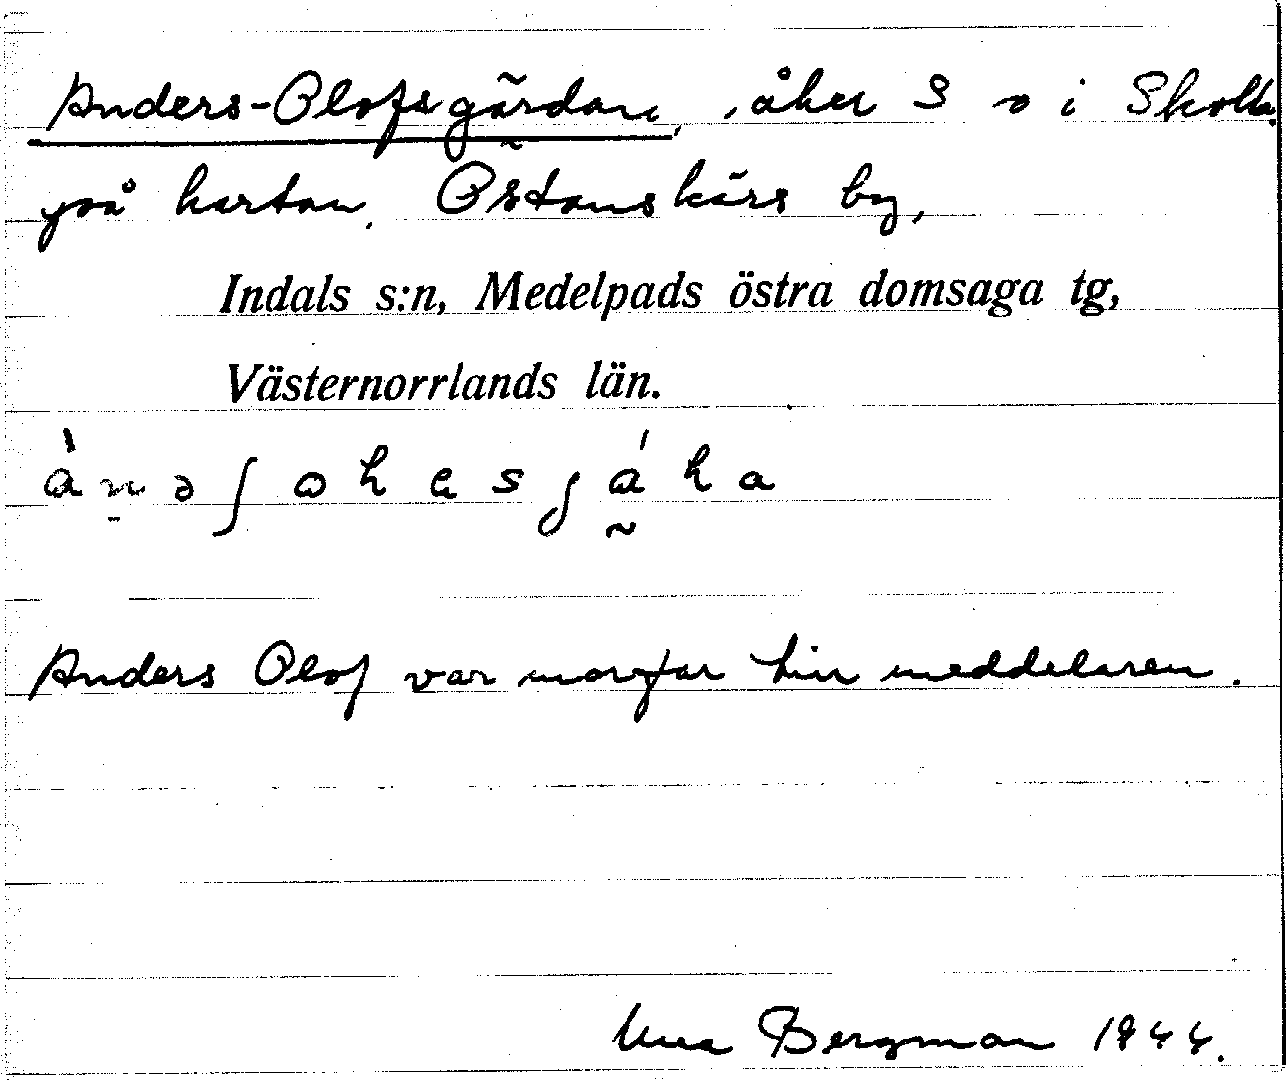 Anders-Olofsgärdan, åker S o i Skolla
på kartan. Östanskärs by,
Indals s:n, Medelpads östra domsaga tg,
Västernorrlands län.
Anders Olof var morfar till meddelaren.
Bergman 1944.